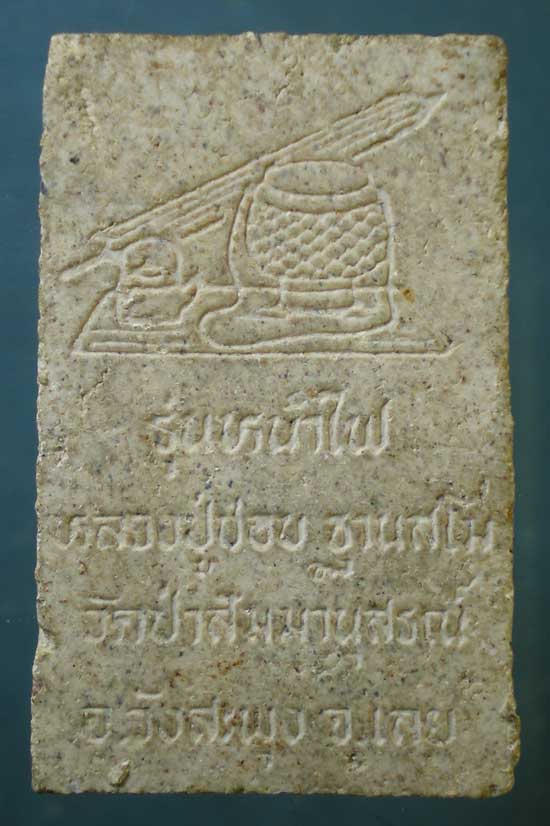 รุ่นหน้าไฟ
หลวงปู่ชอบ ฐานสโม
วัดป่าสัมมานุสรณ์
อ.วังสะพุง จ.เลย